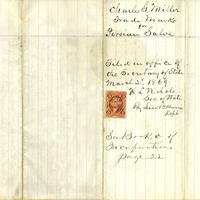 Charles E. Miller
Trade Mark
for
Persian Salve
Filed in office of
the Secretary of State
March 2d 1869
K L Nichols
Sec of State
By
Dept
See Book of
Incorporations
page 22